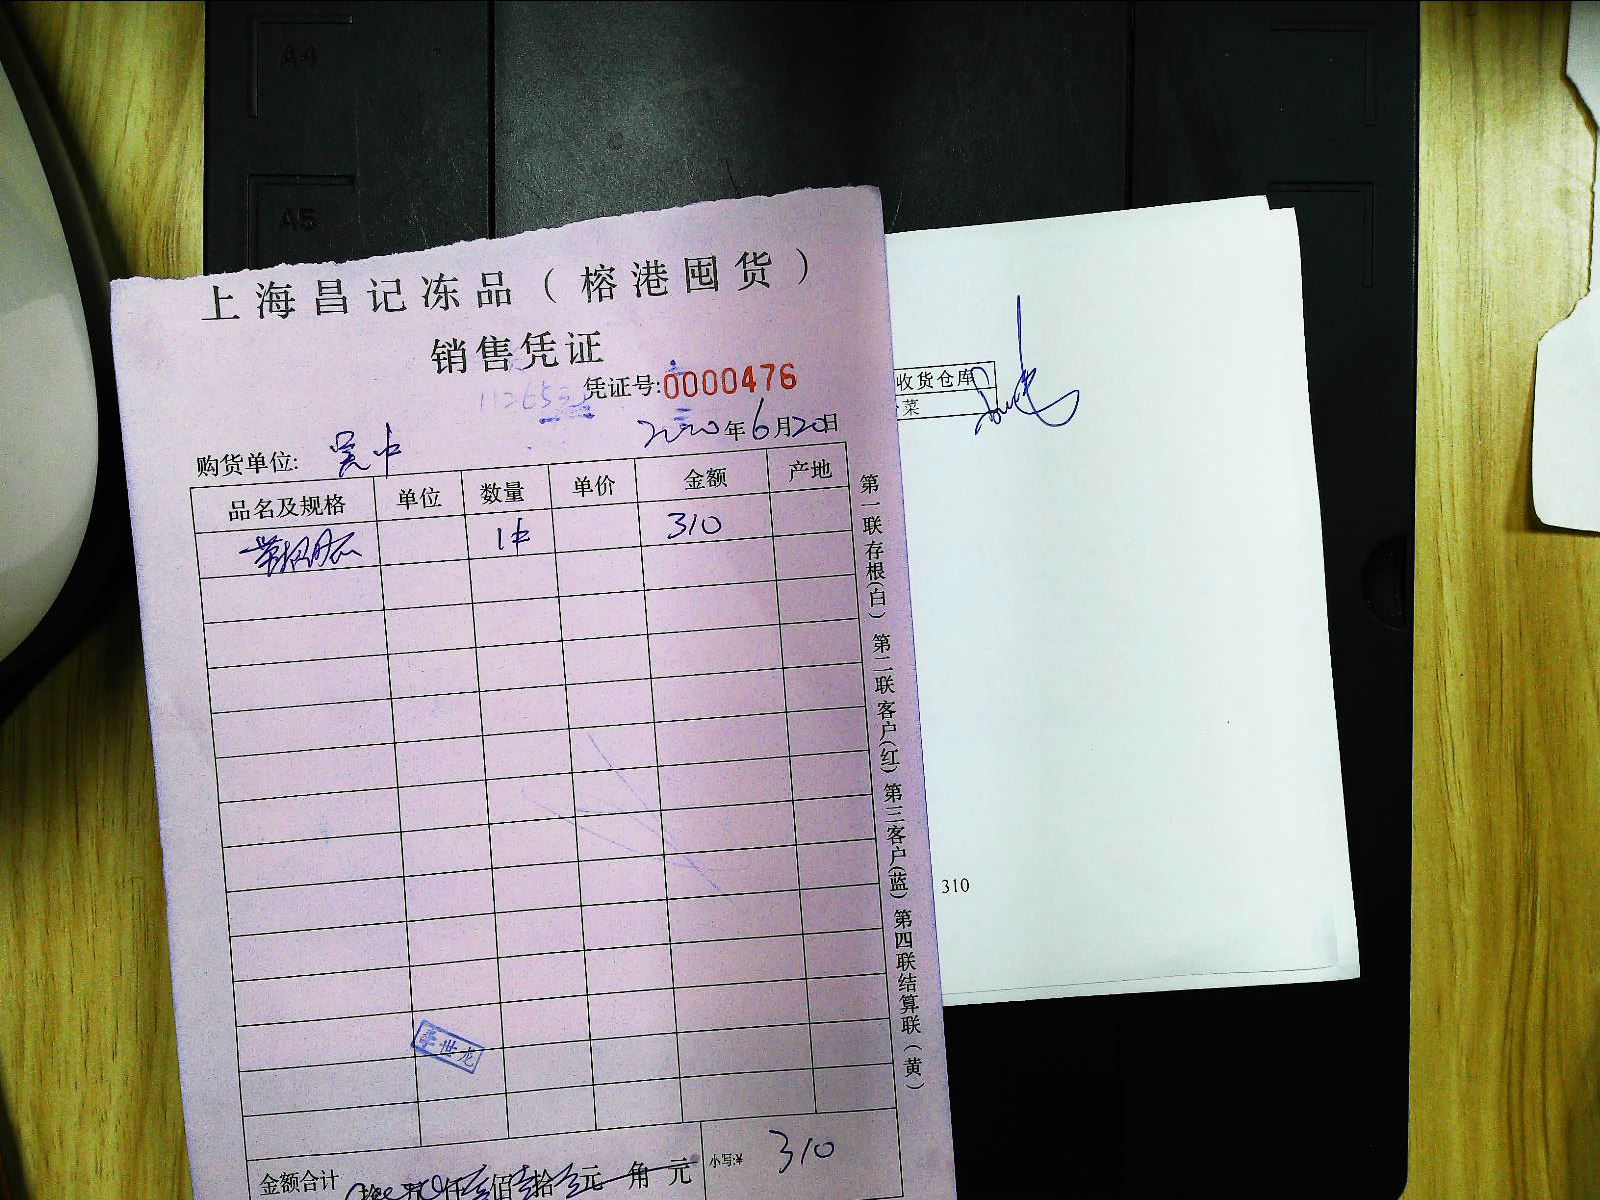 A4
A5
上海昌记冻品（榕港囤货）
销售凭证
凭证号:0000476
购货单位: 吴中 2020年6月20日
品名及规格 单位 数量 单价 金额 产地
310
第一联存根(白) 第二联客户(红) 第三客户(蓝) 第四联结算联(黄)
李世龙
金额合计 拾 万 仟 佰 拾 元 角 元 小写:¥ 310
收货仓库
菜
310